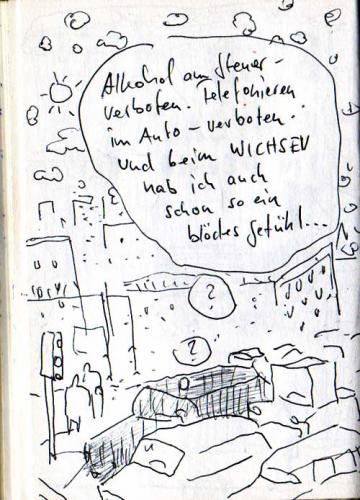 Alkohol am Steuer -
verboten. Telefonieren
im Auto - verboten.
und beim WICHSEN
hab ich auch
schon so ein
blödes Gefühl...
?
?